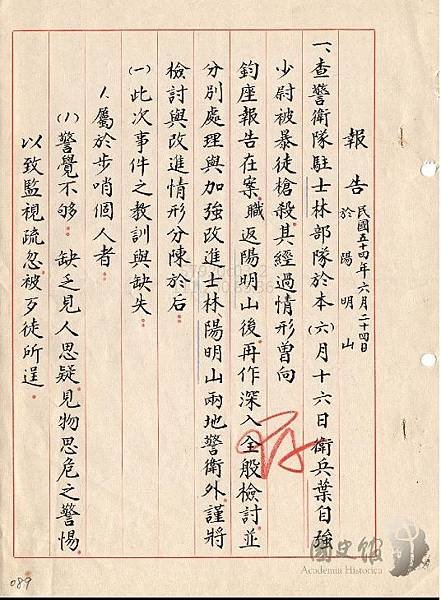 報告 民國五十四年六月二十四日
於陽明山
一、查警衛隊駐士林部隊於本(六)月十六日衛兵葉自強
少尉被暴徒槍殺。其經過情形曾向
鈞座報告在案。職返陽明山後。再作深入全般檢討。並
分別處理與加強改進士林、陽明山兩地警衛外。謹將
檢討與改進情形分陳於后。
(一)此次事件之教訓與缺失。
1.屬於步哨個人者。
(1)警覺不够。缺乏見人思疑。見物思危之警惕。
以致監視疏忽。被歹徒所逞。
089
國史館
Academia Historica